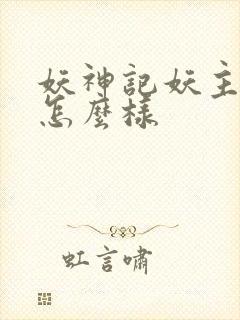 妖神記妖主
怎麼樣
虹言嘯